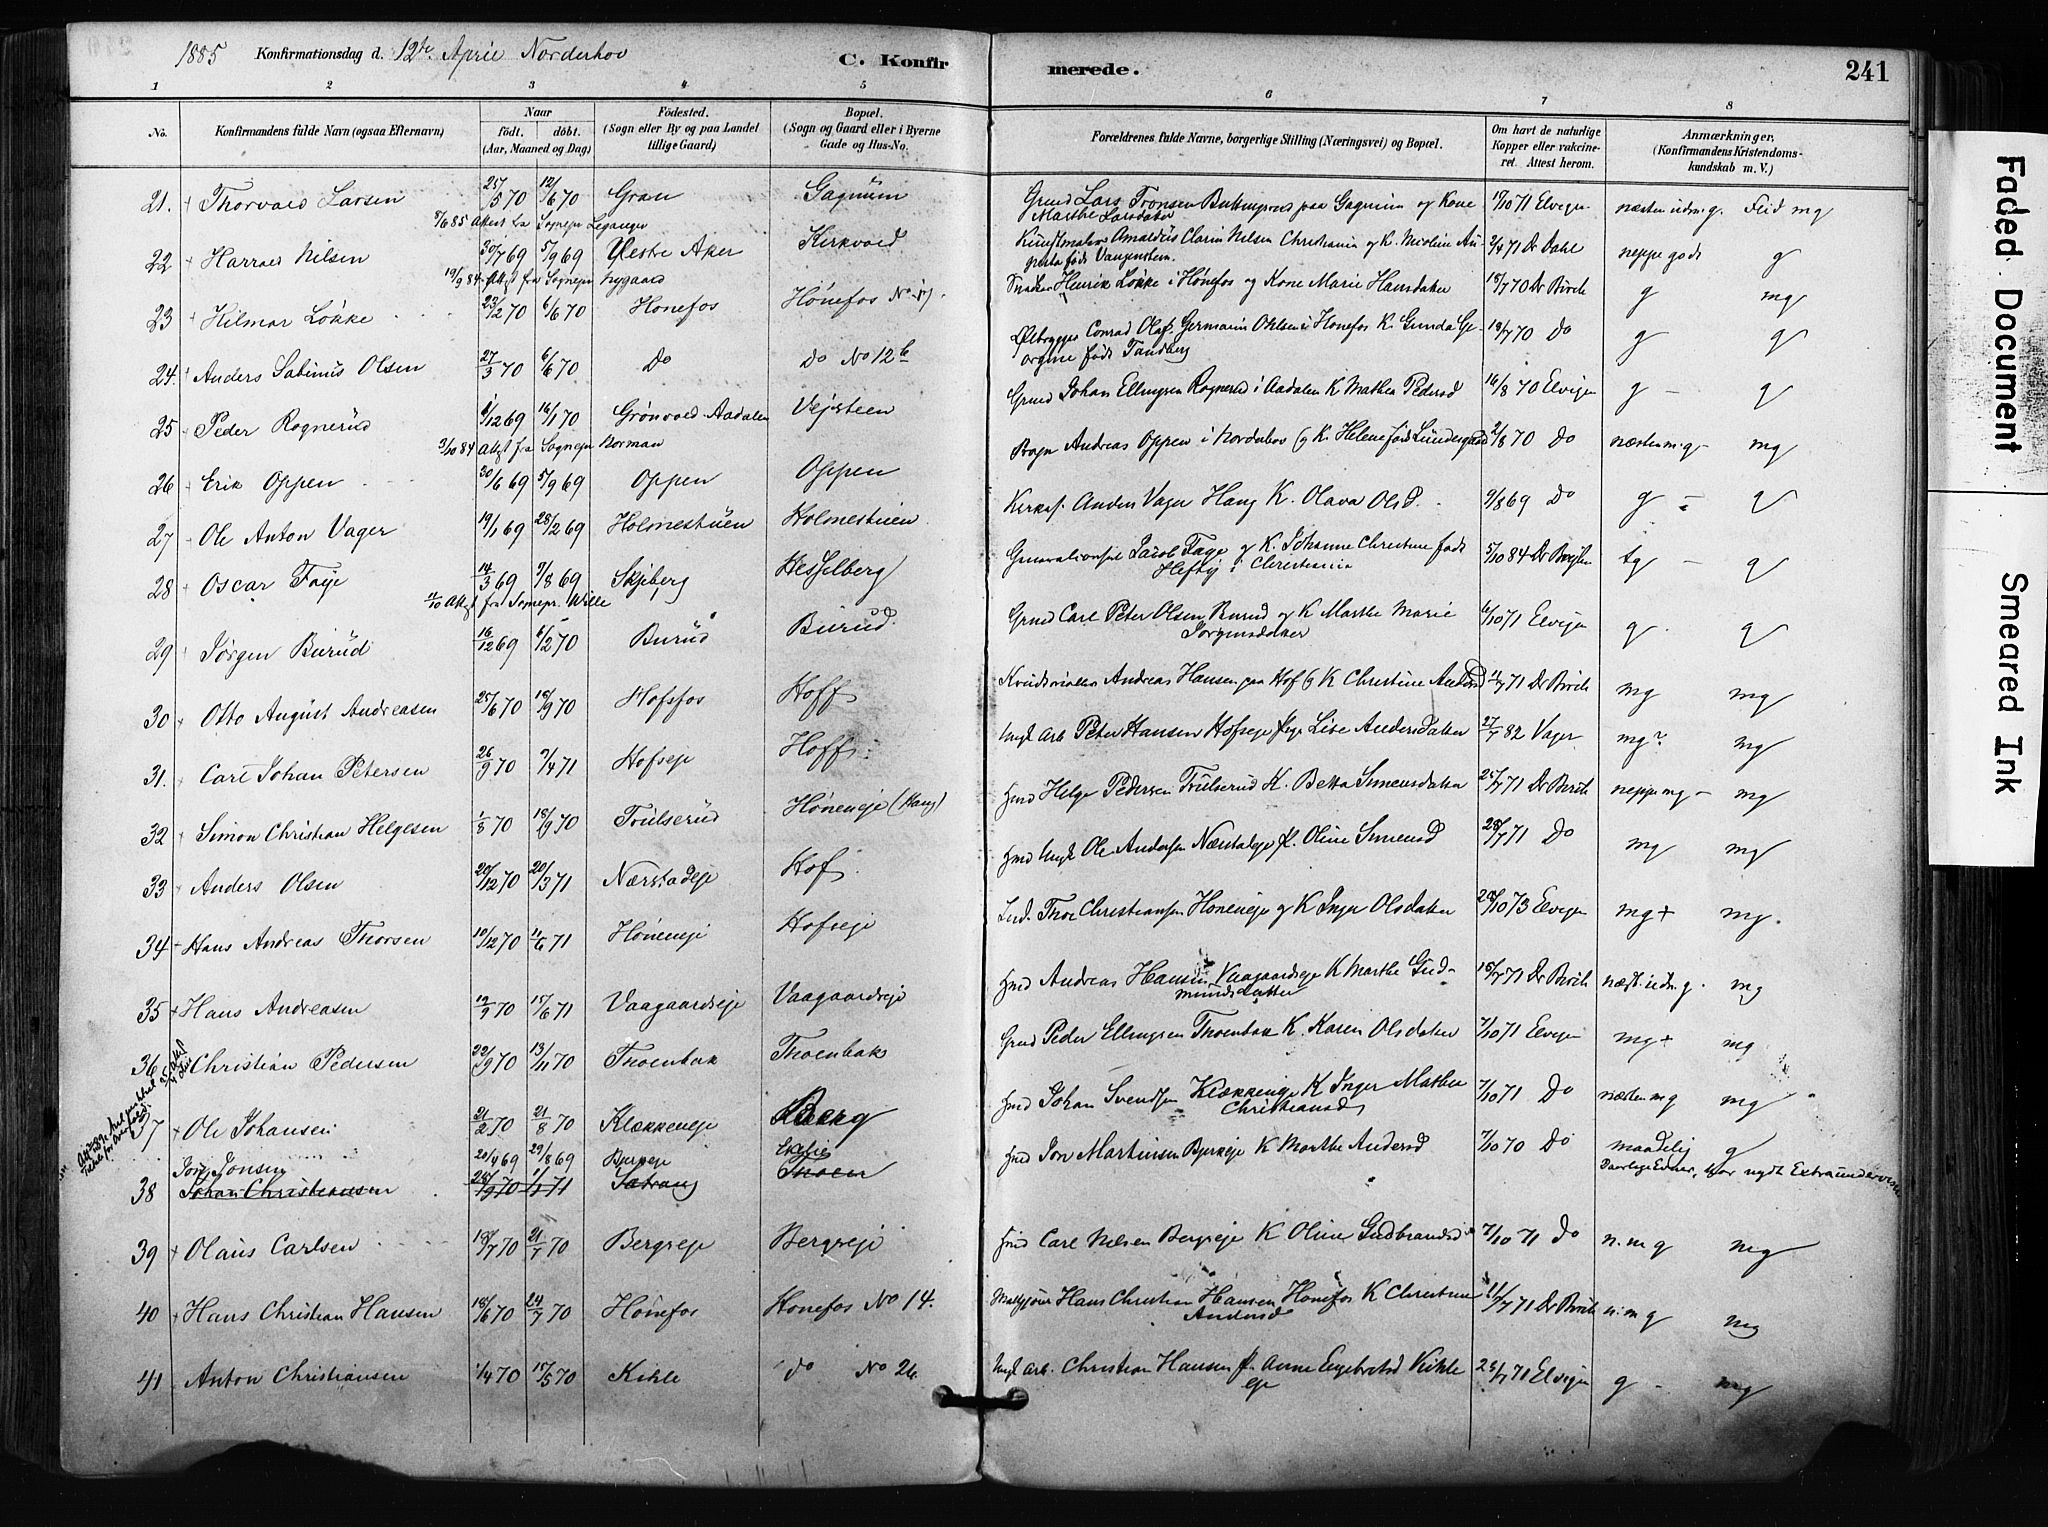 1885 Konfirmationsdag d. 12te April Norderhov C. Konfirmerede. 241
1 2 3 4 5 6 7 8
No. Konfirmandens fulde Navn (ogsaa Efternavn) Naar født. døbt. (Aar, Maaned og Dag) Fødested. (Sogn eller By og paa Landet tillige Gaard) Bopæl. (Sogn og Gaard eller i Byerne Gade og Hus-No. Forældrenes fulde Navne, borgerlige Stilling (Næringsvei) og Bopæl. Om havt de naturlige Kopper eller vakcineret. Attest herom. Anmærkninger. (Konfirmandens Kristendomskundskab m. V.)
21. Thorvald Larsen 25/5 70 12/6 70 Gran Gagnum Grmd Lars Tronsen paa Gagnum og Kone Marthe Larsdater 17/10 71 Elvigen næsten udm. g. Flid mg
8/6 85 Attest fra Sognepr Leganger
22 Harald Nilsen 30/7 69 5/9 69 Vestre Aker Kirkvold Kunstmaler Amaldus Clarin Nilsen Christiania og K. Nicoline Augusta født Vangensteen. 2/4 71 Dr Dahl neppe godt g
19/9 84 Attest fra Sognepr Nygaard
23 Hilmar Løkke 23/2 70 6/6 70 Hønefos Hønefos No 17. Snedker Henrik Løkke i Hønefos og Kone Marie Hansdater 18/7 70 Dr Birch g mg
24. Anders Sabinus Olsen 27/3 70 6/6 70 Do Do No 12 b Ølbrygger Conrad Olaf Germanus Ohlsen i Hønefos K. Gunda Georgine født Tandberg 18/7 70 Do g g
25 Peder Rognerud 1/12 69 16/1 70 Grønvold Aadalen Vejsteen Grmd Johan Ellingsen Rognerud i Aadalen K Mathea Pedersd 16/8 70 Elvigen g – g
3/10 84 Attest fra Sognepr Norman
26 Erik Oppen 30/6 69 5/9 69 Oppen Oppen Andreas Oppen i Norderhov og K. Helene født Lundesgaard 2/8 70 Do næsten mg – mg
27 Ole Anton Vager 19/1 69 28/2 69 Holmestuen Holmestuen. Kirkes. Anders Vager Haug K. Olava Olsd. 9/8 69 Do g g
28 Oscar Faye 14/3 69 9/8 69 Skjeberg Hesselberg Jacob Faye og K. Johanne Christine født Heftij i Christiania 5/10 84 Dr tg – g
/10 Attest fra Sognepr. Wille
29 Jørgen Burud 16/12 69 6/2 70 Burud Burud Grmd Carl Peter Olsen Burud og K Marthe Marie Jørgensdater 6/10 71 Elvigen g. g
30 Otto August Andreasen 25/6 70 18/9 70 Hofsfos Hoff Andreas Hansen paa Hof og K Christine Andersd 11/7 71 Dr Birch mg mg
31. Carl Johan Petersen 26/9 70 9/4 71 Hofseje Hoff Ungk Arb Peter Hansen Hofseje Pige Lise Andersdatter 27/7 82 Vager mg? mg
32 Simon Christian Helgesen 1/8 70 18/9 70 Trulserud Høneneje (Haug) Hmd Helge Pedersen Trulserud K. Betta Simensdater 25/7 71 Dr Birch neppe mg – mg
33 Anders Olsen 20/12 70 20/3 71 Nærstadeje Hof Hmd Ungk Ole Andersen Nærstadeje P. Oline Simensd 28/7 71 Do mg mg
34 Hans Andreas Thorsen 10/12 70 11/6 71 Høneneje Hofseje Ind. Thor Christiansen Høneneje og K Inger Olsdater 28/10 73 Elvigen mg+ mg.
35 Hans Andreasen 12/9 70 15/6 71 Vaagaardseje Vaagaardseje Hmd Andreas Hansen Vaagaardseje K Marthe Gudmundsdatter 18/7 71 Dr Birch næst. udm. g. mg
36 Christian Pedersen 22/9 70 13/11 70 Thoenbak Thoenbak Grmd Peder Ellingsen Thoenbak K. Karen Olsdater 7/10 71 Elvigen mg+ mg
37 Ole Johansen 21/2 70 21/8 70 Klækkeneje Berg Hmd Johan Svendsen Klækkeneje K Inger Mathea Christiansd 7/10 71 Do næsten mg mg
38 Jon Jonsen 20/4 69 29/8 69 Bjerkeje Hmd Jon Martinsen Bjerkeje K Marthe Andersd 7/10 70 Do maadelig g
Johan Christiansen 28/9 70 1/1 71 Sætrang Thoen Daarlige Evner, har nydt Extraundervisn
39 Olaus Carlsen 18/7 70 21/7 70 Bergseje Bergseje Hmd Carl Nilsen Bergseje K Oline Gudbrandsd 7/10 71 Do n. mg mg
40 Hans Christian Hansen 18/6 70 24/7 70 Hønefos Hønefos No 14. Hans Christian Hansen Hønefos K Christine Andersd 11/7 71 Dr Birch n. mg mg
41 Anton Christiansen 1/4 70 15/5 70 Kihle do No 26 Ungk arb. Christian Hansen P. Anne Engebretsd Kihle eje 25/7 71 Elvigen g – mg
Faded Document
Smeared Ink